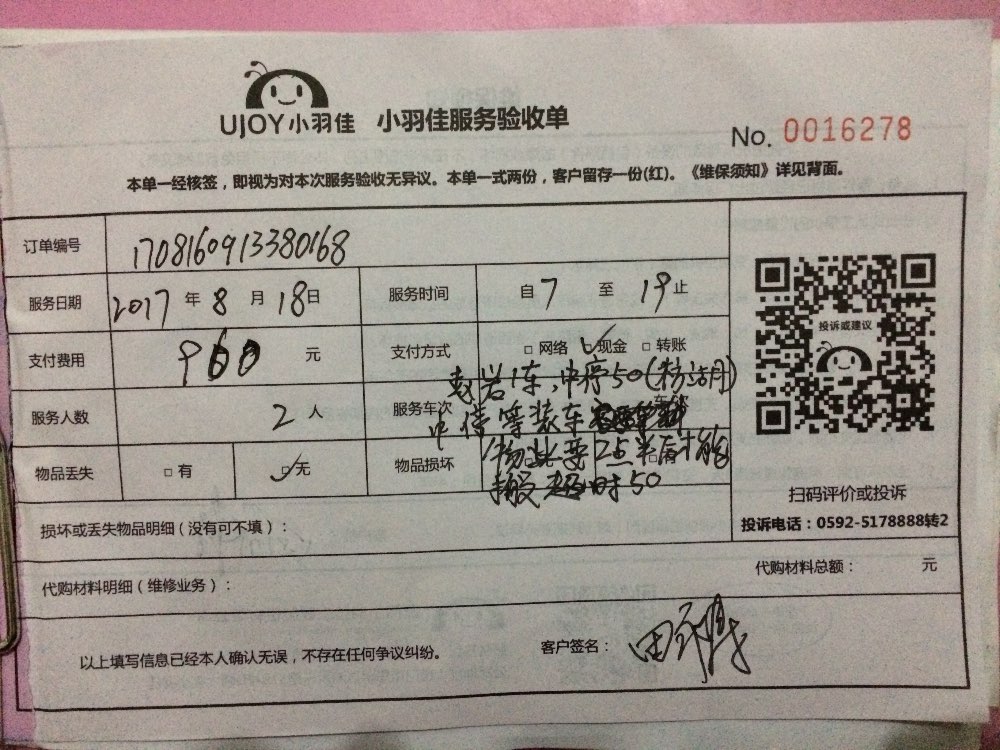 UJOY小羽佳 小羽佳服务验收单
No. 0016278
本单一经核签，即视为对本次服务验收无异议。本单一式两份，客户留存一份(红)。《维保须知》详见背面。
订单编号 1708160913380168
服务日期 2017 年 8 月 18 日 服务时间 自 7 至 19 止
投诉或建议
支付费用 960 元 支付方式 □ 网络 ☑ 现金 □ 转账
服务人数 2 人 服务车次 1车，中停50(
车次
中 等装车
物品丢失 □ 有 ☑ 无 物品损坏 物业要2点半后才能
搬 超时50
扫码评价或投诉
投诉电话：0592-5178888转2
损坏或丢失物品明细（没有可不填）：
代购材料明细（维修业务）： 代购材料总额： 元
以上填写信息已经本人确认无误，不存在任何争议纠纷。 客户签名：